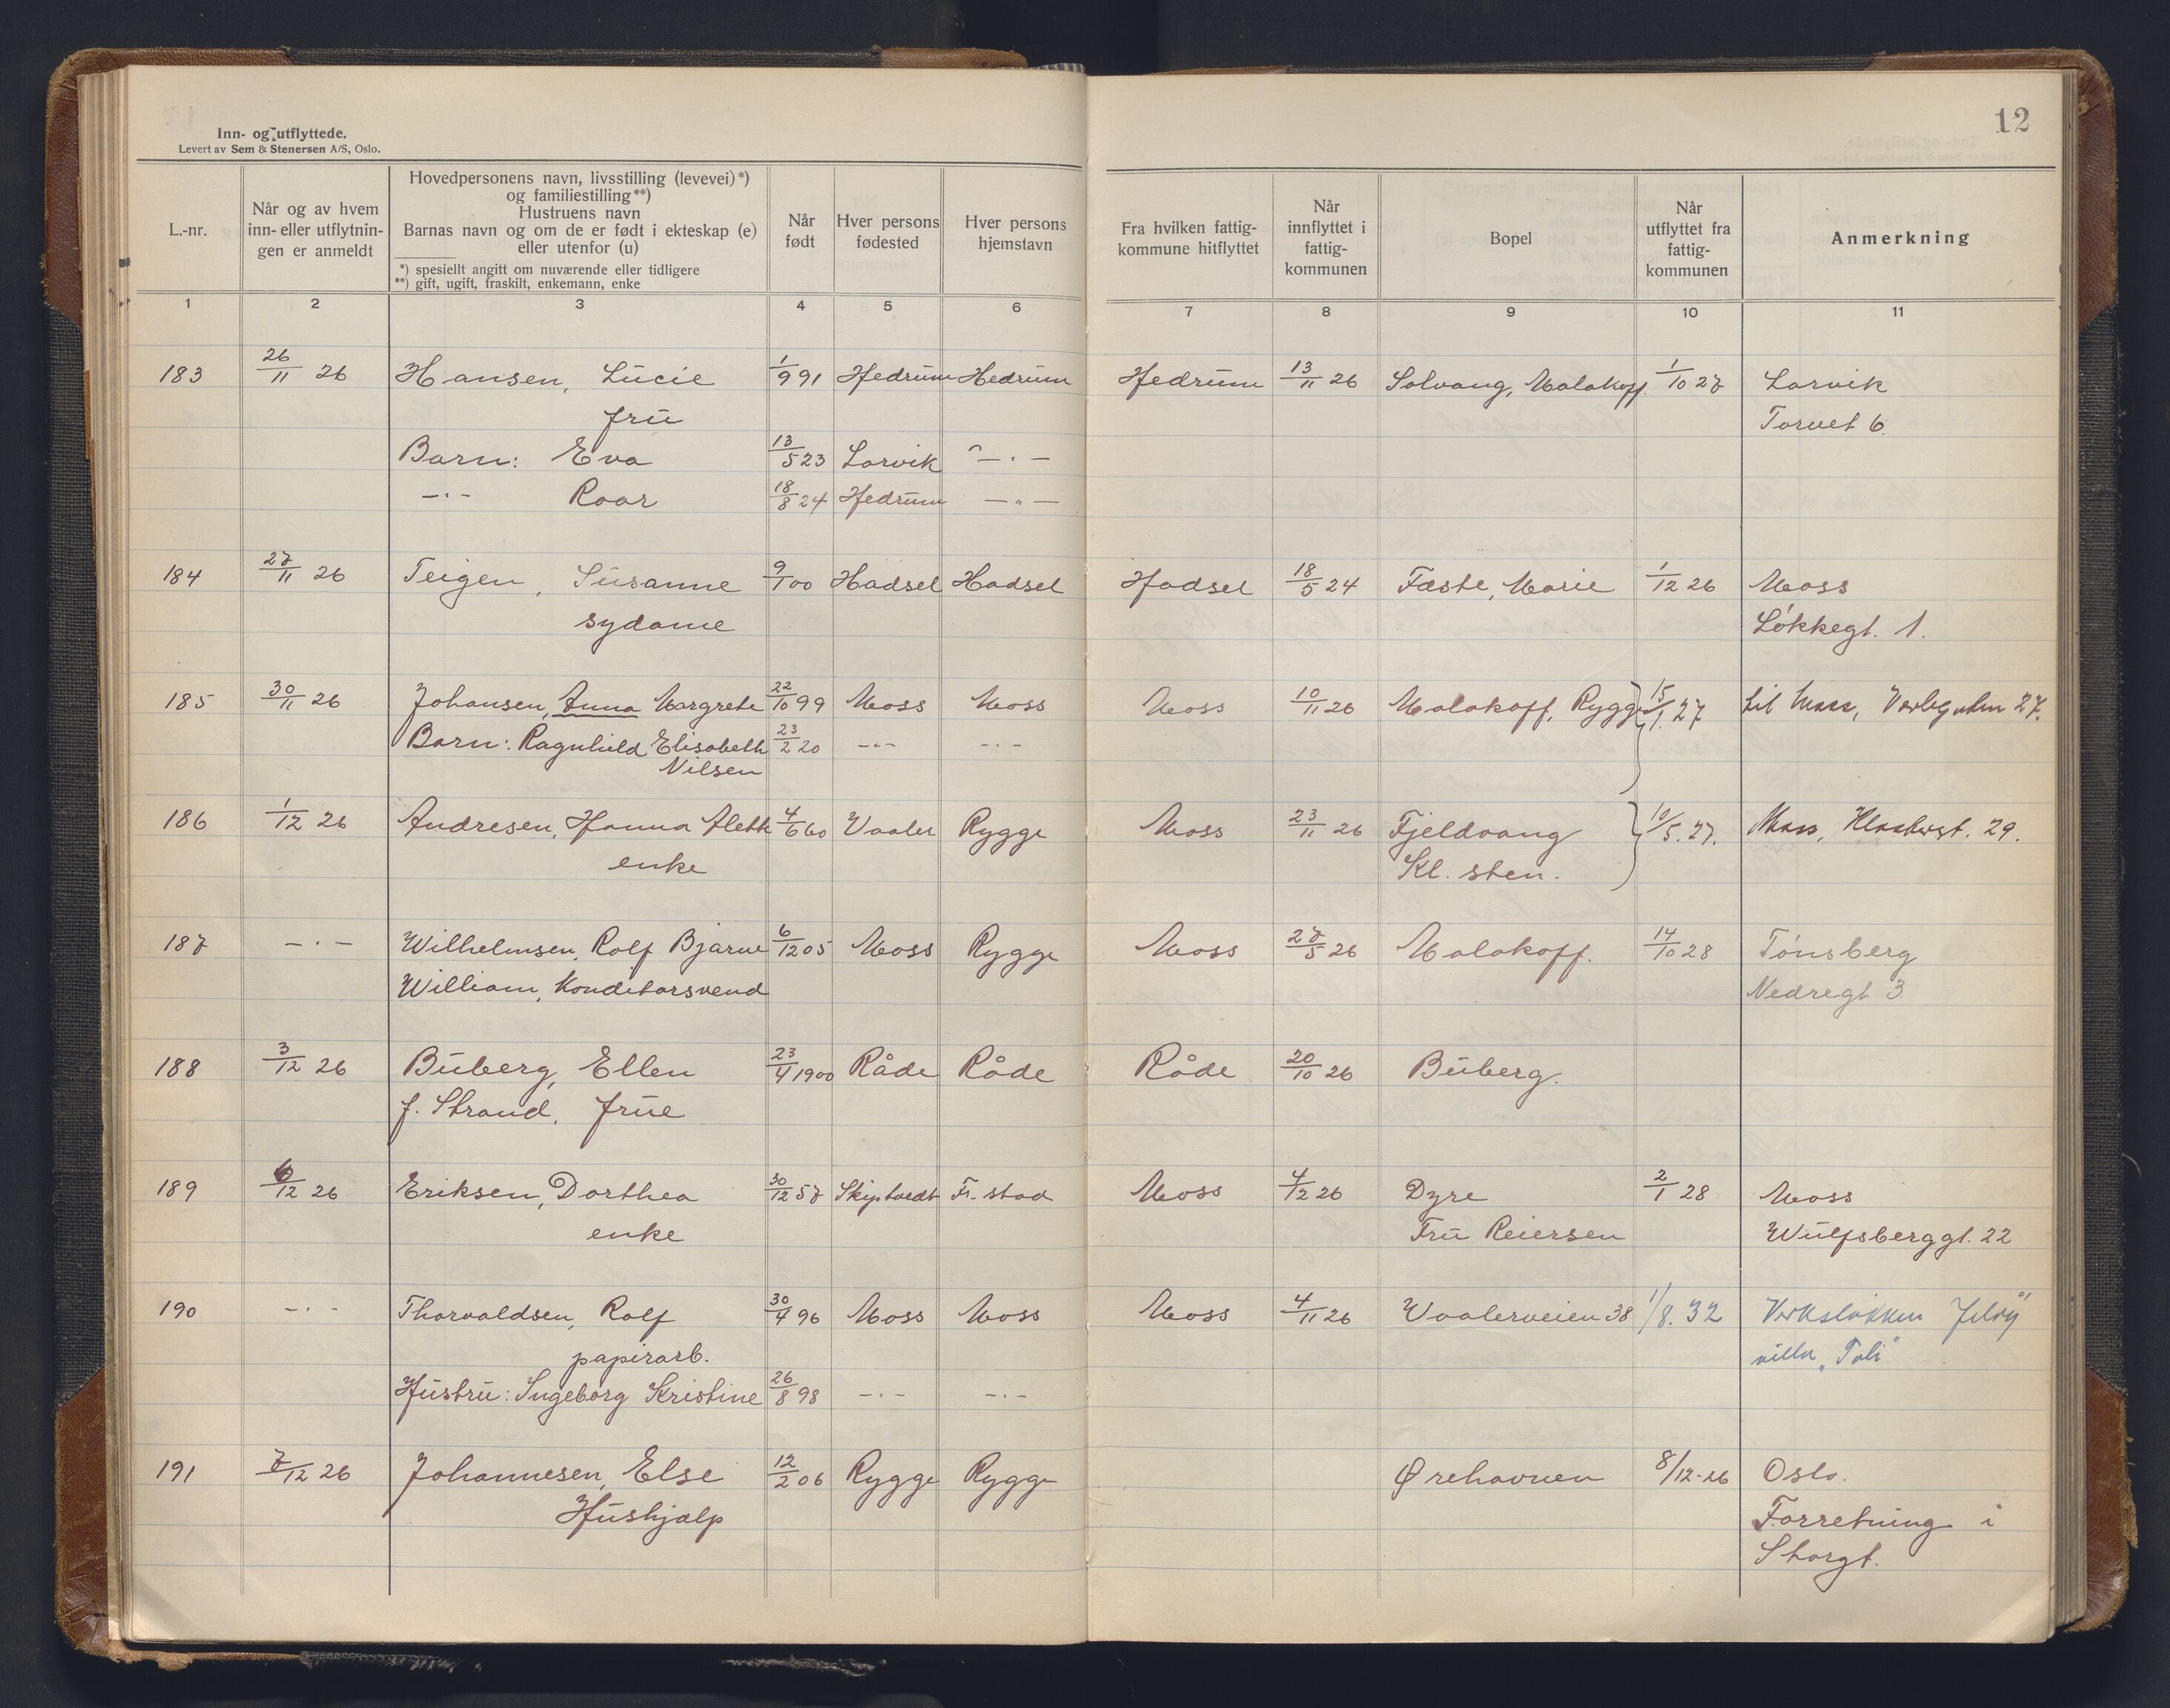 12
Inn- og utflyttede.
Levert av Sem & Stenersen A/S, Oslo.
L.-nr.
Når og av hvem
inn- eller utflytnin-
gen er anmeldt
Hovedpersonens navn, livsstilling (levevei) *)
og familiestilling **)
Hustruens navn
Barnas navn og om de er født i ekteskap (e)
eller utenfor (u)
*) spesiellt angitt om nuværende eller tidligere
**) gift, ugift, fraskilt, enkemann, enke
Når
født
Hver persons
fødested
Hver persons
hjemstavn
Fra hvilken fattig-
kommune hitflyttet
Når
innflyttet i
fattig-
kommunen
Bopel
Når
utflyttet fra
fattig-
kommunen
Anmerkning
1 2 3 4 5 6 7 8 9 10 11
183 26/11 26 Hansen, Lucie 1/9 91 Hedrum Hedrum Hedrum 13/11 26 Solvang, Malakoff. 1/10 27 Larvik
fru Torvet 6.
Barn: Eva 13/5 23 Larvik —"—
—"— Roar 18/8 24 Hedrum —"—
184 27/11 26 Teigen, Susanne 9/1 00 Hadsel Hadsel Hadsel 18/5 24 Fæste, Marie 1/12 26 Moss
sydame Løkkegt. 1.
185 30/11 26 Johansen, Anna Margrete 22/10 99 Moss Moss Moss 10/11 26 Malakoff, Rygge 15/1. 27 til Moss, 27.
Barn: Ragnhild Elisabeth 23/2 20 —"— —"—
Nilsen
186 1/12 26 Andresen, Hanna Aleth 4/6 60 Vaaler Rygge Moss 23/11 26 Fjeldvang 10/5. 27. Moss, Klosterst. 29.
enke Kl. sten.
187 —"— Wilhelmsen, Rolf Bjarne 6/12 05 Moss Rygge Moss 27/5 26 Malakoff. 14/10 28 Tønsberg
William, Konditorsvend Nedregt 3
188 3/12 26 Buberg, Ellen 23/4 1900 Råde Råde Råde 20/10 26 Buberg.
f. Strand, frue
189 6/12 26 Eriksen, Dorthea 30/12 57 Skiptvedt Fr.stad Moss 4/12 26 Dyre 2/1 28 Moss
enke Fru Reiersen Wulfsberggt. 22
190 —"— Thorvaldsen, Rolf 30/4 96 Moss Moss Moss 4/11 26 Vaalerveien 38 1/8. 32 Jeløy
papirarb. villa
Hustru: Ingeborg Kristine 26/8 98 —"— —"—
191 7/12 26 Johannesen, Else 12/2 06 Rygge Rygge Ørehavnen 8/12-26 Oslo.
Hushjælp Forretning i
Storgt.